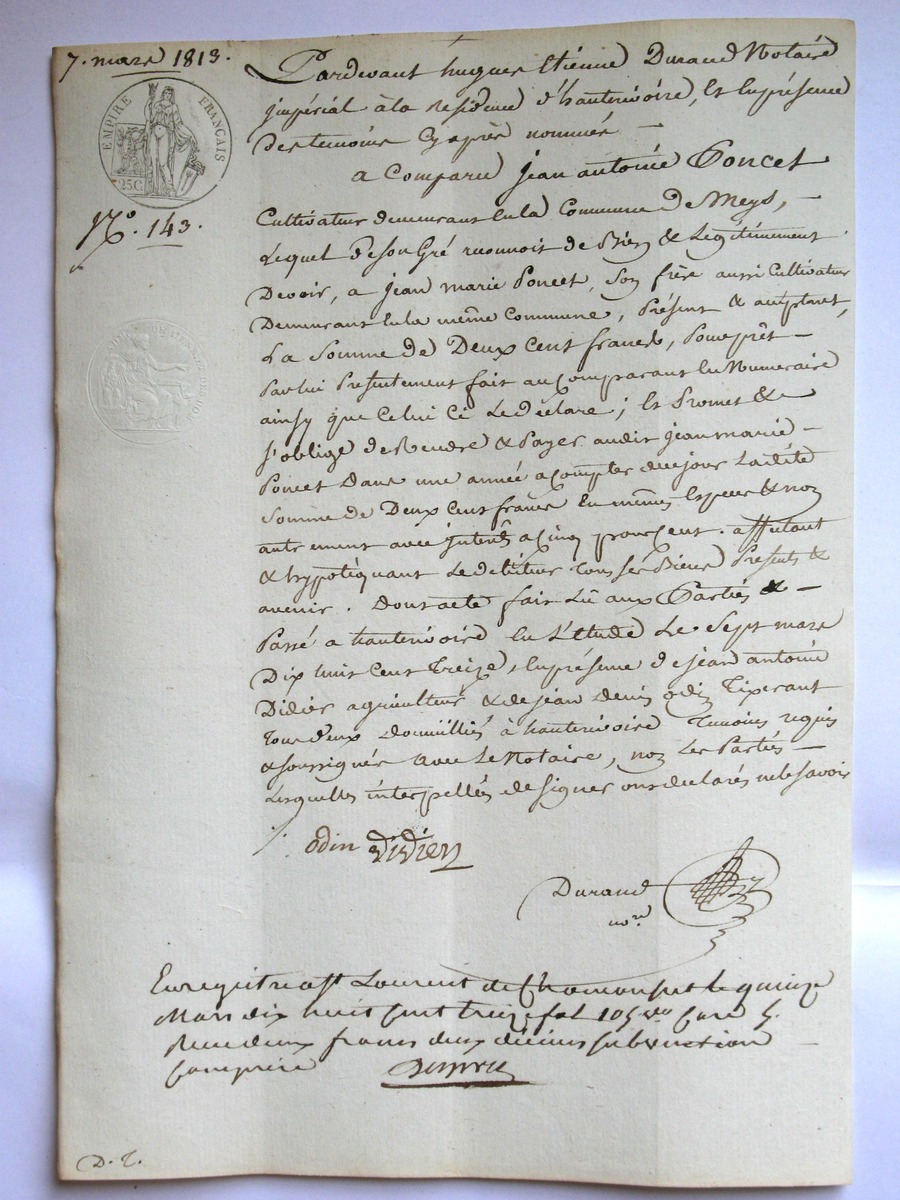 7. mars 1813.
EMPIRE FRANÇAIS
25C.
N.° 143.
Pardevant hugues Etienne Durand Notaire
impérial à la Residence d'hauterivoire, Et En présence
des temoins Cy après nommés —
a Comparu jean antoine Poncet
Cultivateur demeurant En la Commune de Meys, —
Lequel de son Gré reconnoit de Bien & Légitimement
Devoir, a jean marie Poncet, Son frère aussi Cultivateur
Demeurant En la même Commune, Présent & acceptant,
La Somme de Deux Cent francs, Pour prêt —
Par lui Présentement fait au Comparant En Numeraire
ainsy que Celui Ci Le déclare ; Et Promet &
s'oblige de Rendre & Payer audit jean marie —
Poncet Dans une année a Compter de ce jour Ladite
Somme de Deux Cent francs En mêmes Espèces & non
autrement avec jnterêts a Cinq pour Cent. affectant
& hypotéquant Le débiteur tous ses Biens Présents &
avenir. Dont acte fait Lû aux Parties & —
Passé a hauterivoire En L'étude Le Sept mars
Dix huit Cent Treize, En présence de jean antoine
Didier agriculteur & de jean denis odin Tixerant
Tous deux domiciliés à hauterivoire Temoins requis
& soussignés avec Le Notaire, non Les Parties —
Lesquelles interpellées de signer ont déclarés ne le savoir
odin didier
Durand
no.re
Enregistré a St Laurent de Chamousset le quinze
Mars dix huit cent treize fol 105 v.o Case 5.
Reçu deux francs deux décimes subvention
Comprise
D. T.